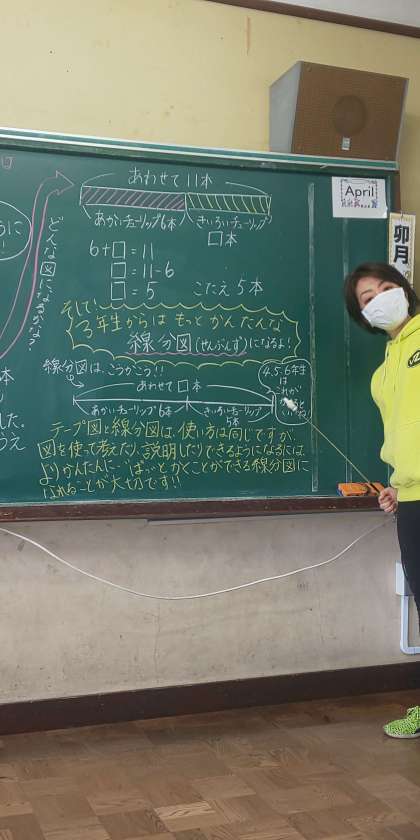 どんな図になるかな?
あわせて11本
あかいチューリップ6本
きいろいチューリップ
□本
6+□=11
□=11-6
□=5
こたえ 5本
そして!
3年生からは もっと かんたんな
線分図(せんぶんず)になるよ!
線分図は、こうかこう!!
あわせて□本
あかいチューリップ6本
きいろいチューリップ
5本
4.5.6年生
は
これが
かけると
いいね!
テープ図と線分図は、使い方は同じですが、
図を使って考えたり、説明したりできるようになるには、
よりかんたんに…ぱっとかくことができる線分図に
なれることが大切です!!
April
卯月